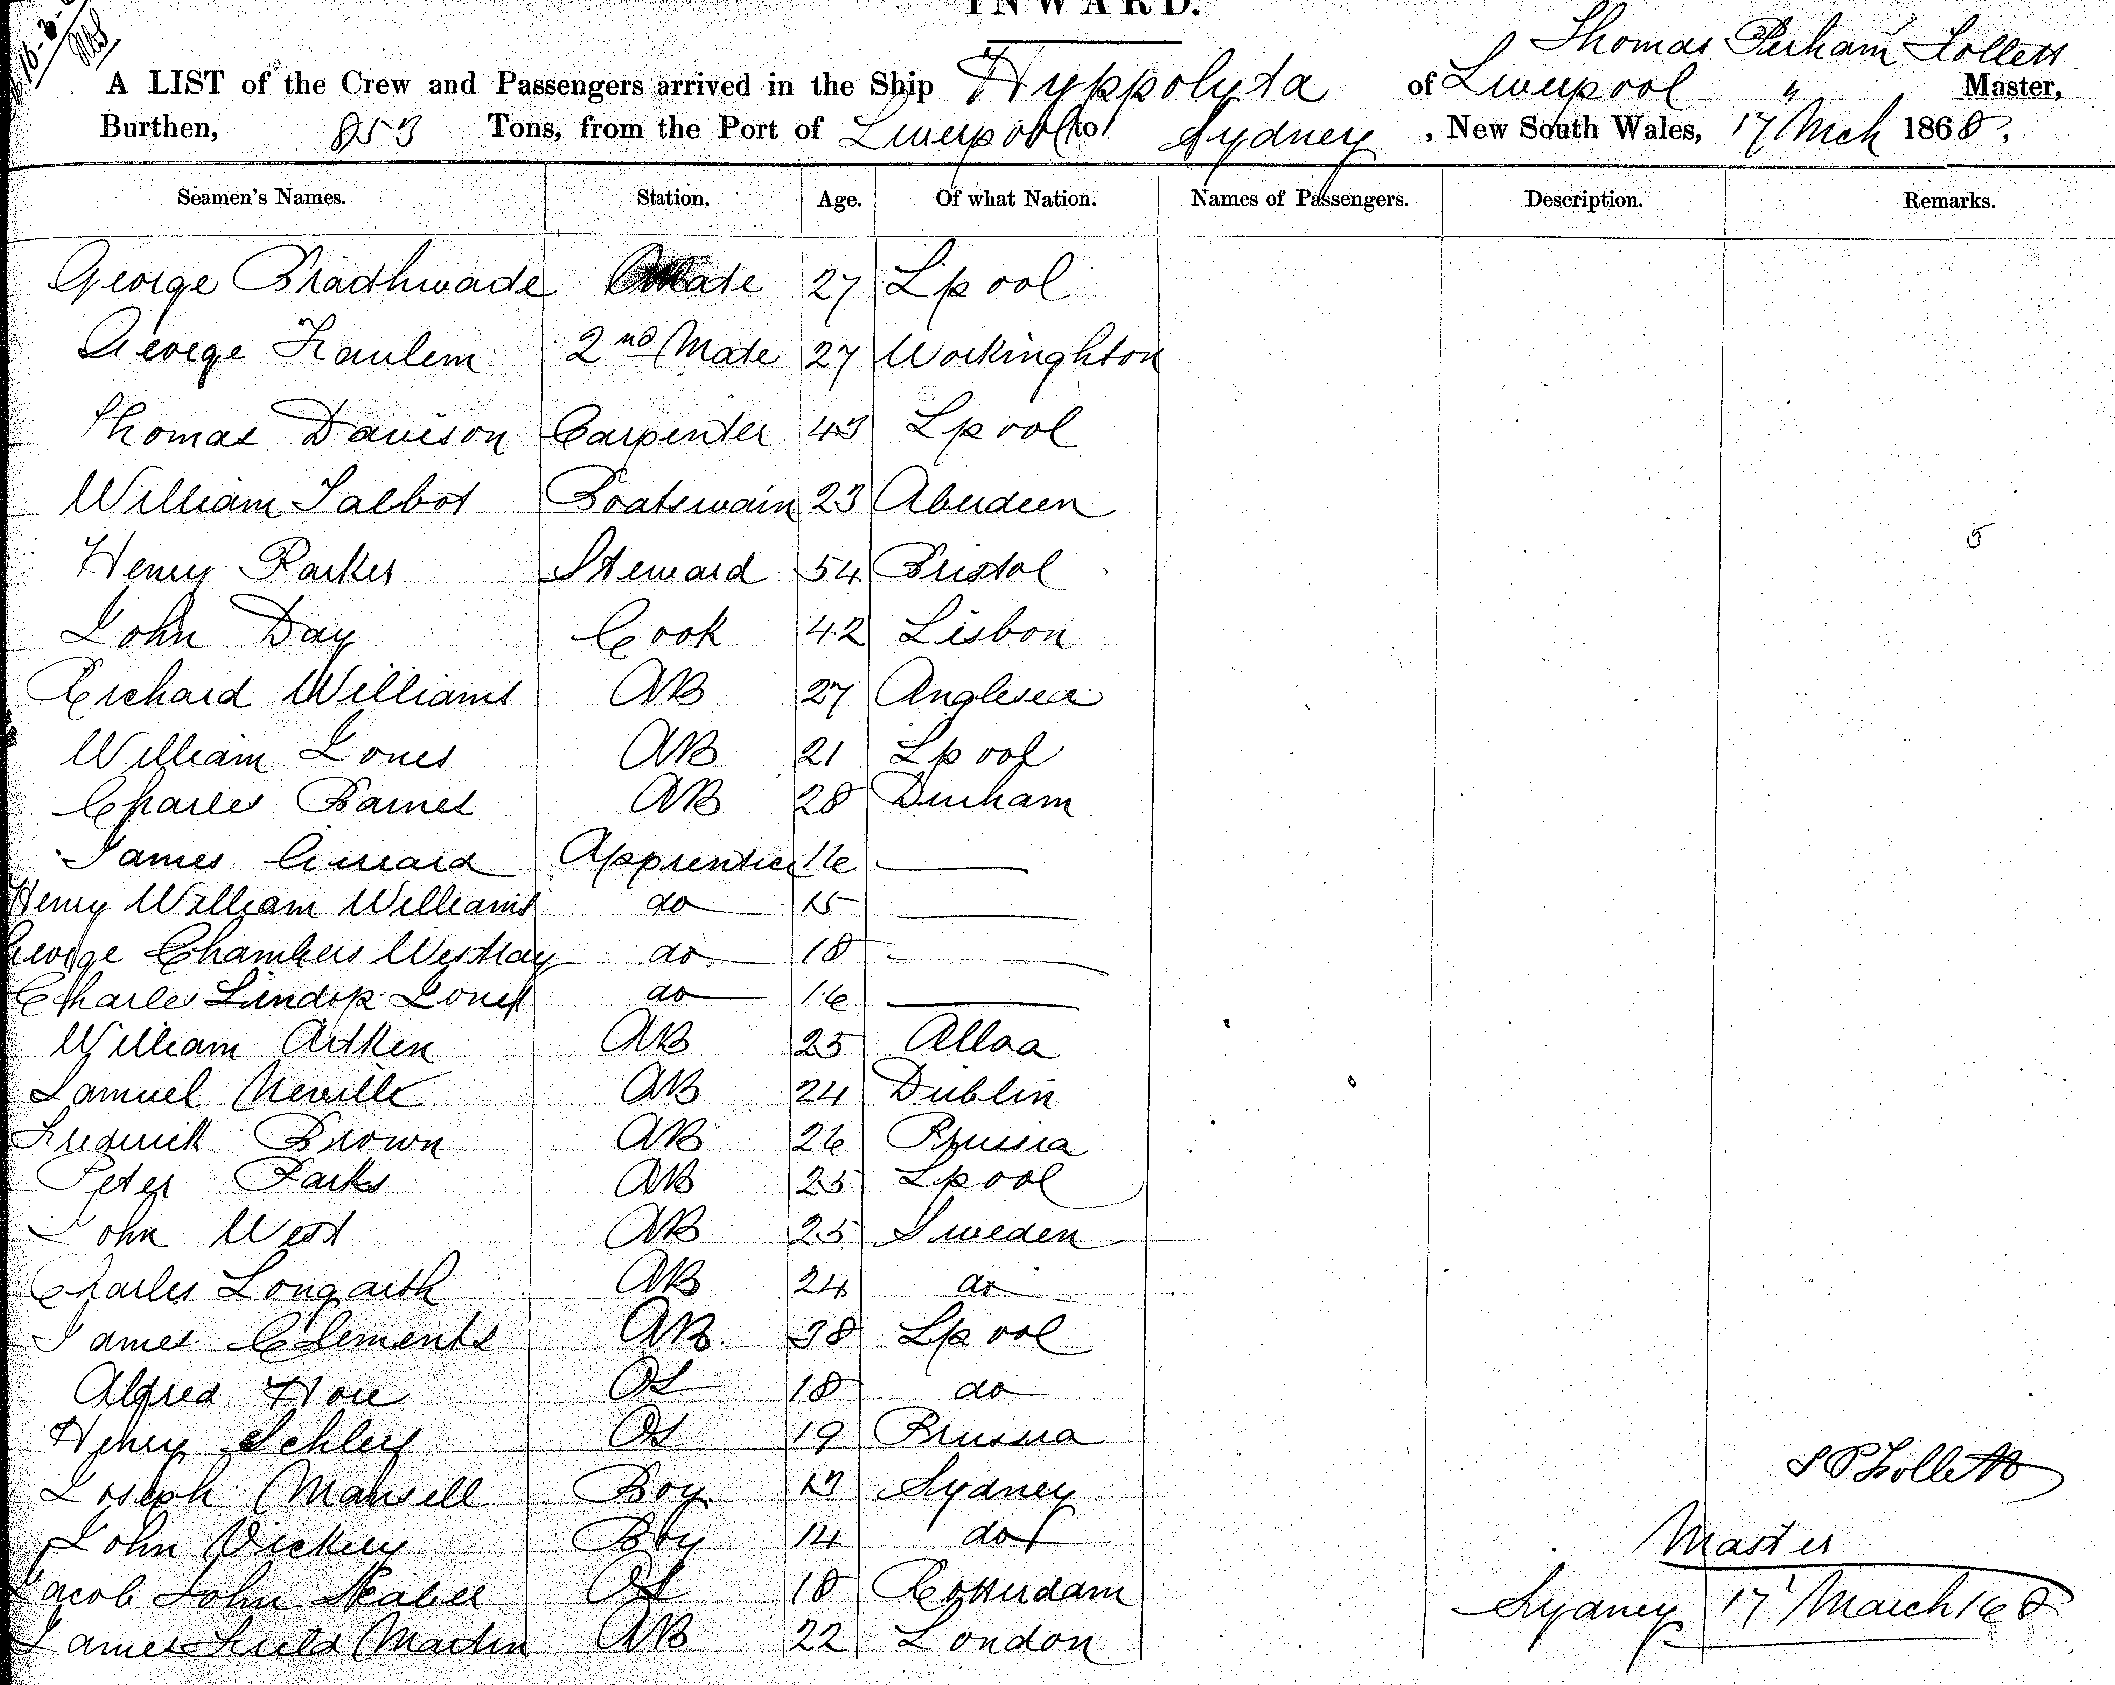 INWARD.
Thomas Perham Follett
A LIST of the Crew and Passengers arrived in the Ship Hyppolyta of Liverpool " Master,
Burthen, 853 Tons, from the Port of Liverpool to Sydney, New South Wales, 17 Mch 1868.
Seamen's Names. Station. Age. Of what Nation. Names of Passengers. Description. Remarks.
George Bradhwade Mate 27 Lpool
George 2nd Mate 27 Workinghton
Thomas Davison Carpenter 43 Lpool
William Talbot Boatswain 23 Aberdeen
Henry Parker Steward 54 Bristol
John Day Cook 42 Lisbon
Richard Williams AB 27 Anglesea
William Jones AB 21 Lpool
Charles Barnes AB 28 Durham
James Apprentice 16
Henry William Williams do 15
George Chambers Westray do 18
Charles Lindop Jones do 16
William Aitken AB 25 Alloa
Samuel Neville AB 24 Dublin
Frederick Brown AB 26 Prussia
Peter Parks AB 25 Lpool
John West AB 25 Sweden
Charles Longarth AB 24 do
James Clements AB 38 Lpool
Alfred Hore OS 18 do
Henry Schley OS 19 Prussia
Joseph Mansell Boy Sydney
John Vickery Boy 14 do
Jacob John OS 18 Rotterdam
James Field Martin AB 22 London
T P Follett
Master
Sydney 17 March 168